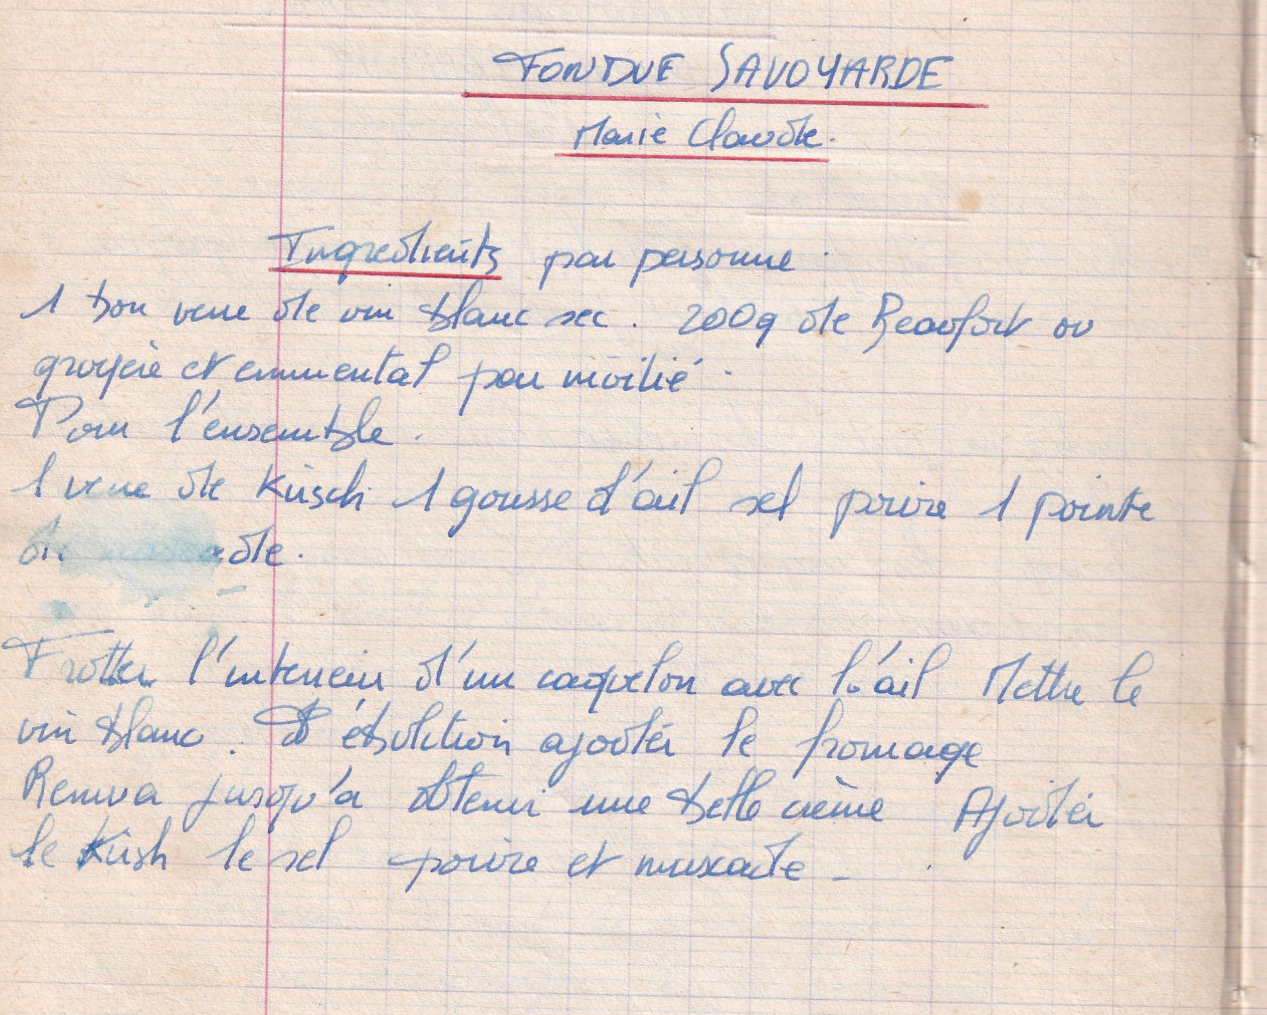 FONDUE SAVOYARDE
Marie Claude.
Ingrédients par personne.
1 bon verre de vin blanc sec. 200g de Beaufort ou
gruyère et emmental par moitié.
Pour l'ensemble.
1 verre de Kirsch 1 gousse d'ail sel poivre 1 pointe
de muscade.
Frotter l'interieur d'un caquelon avec l'ail Mettre le
vin blanc. A ébulition ajouter le fromage
Remuer jusqu'a obtenir une belle crème Ajouter
le Kirsh le sel poivre et muscade -